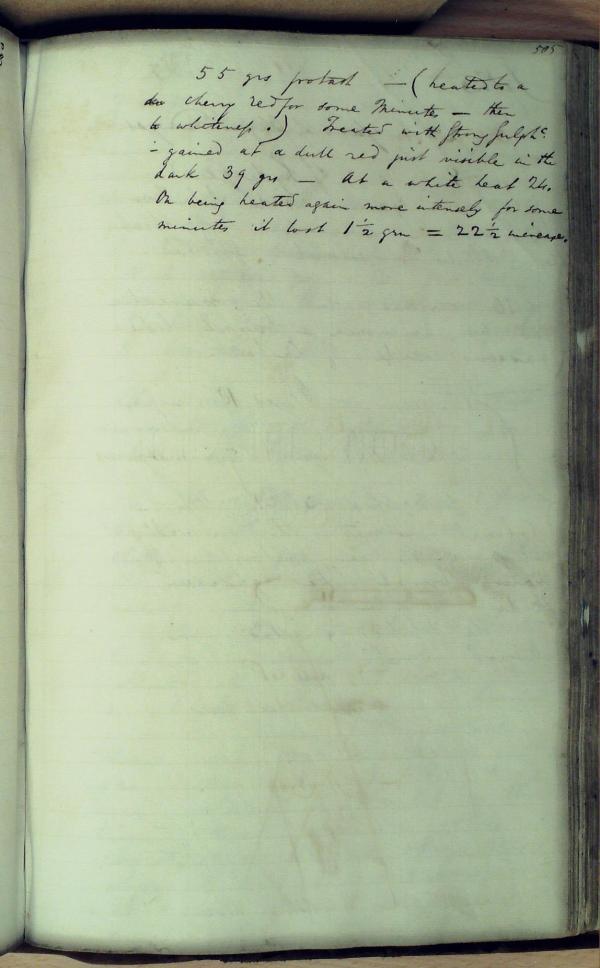 505
55 grs potash — (heated to a
cherry red for some minutes — then
to whiteness.) Treated with strong sulphc
- gained at a dull red just visible in the
dark 39 grs — At a white heat 24.
On being heated again more intensely for some
minutes it lost 1½ grn = 22½ increase.